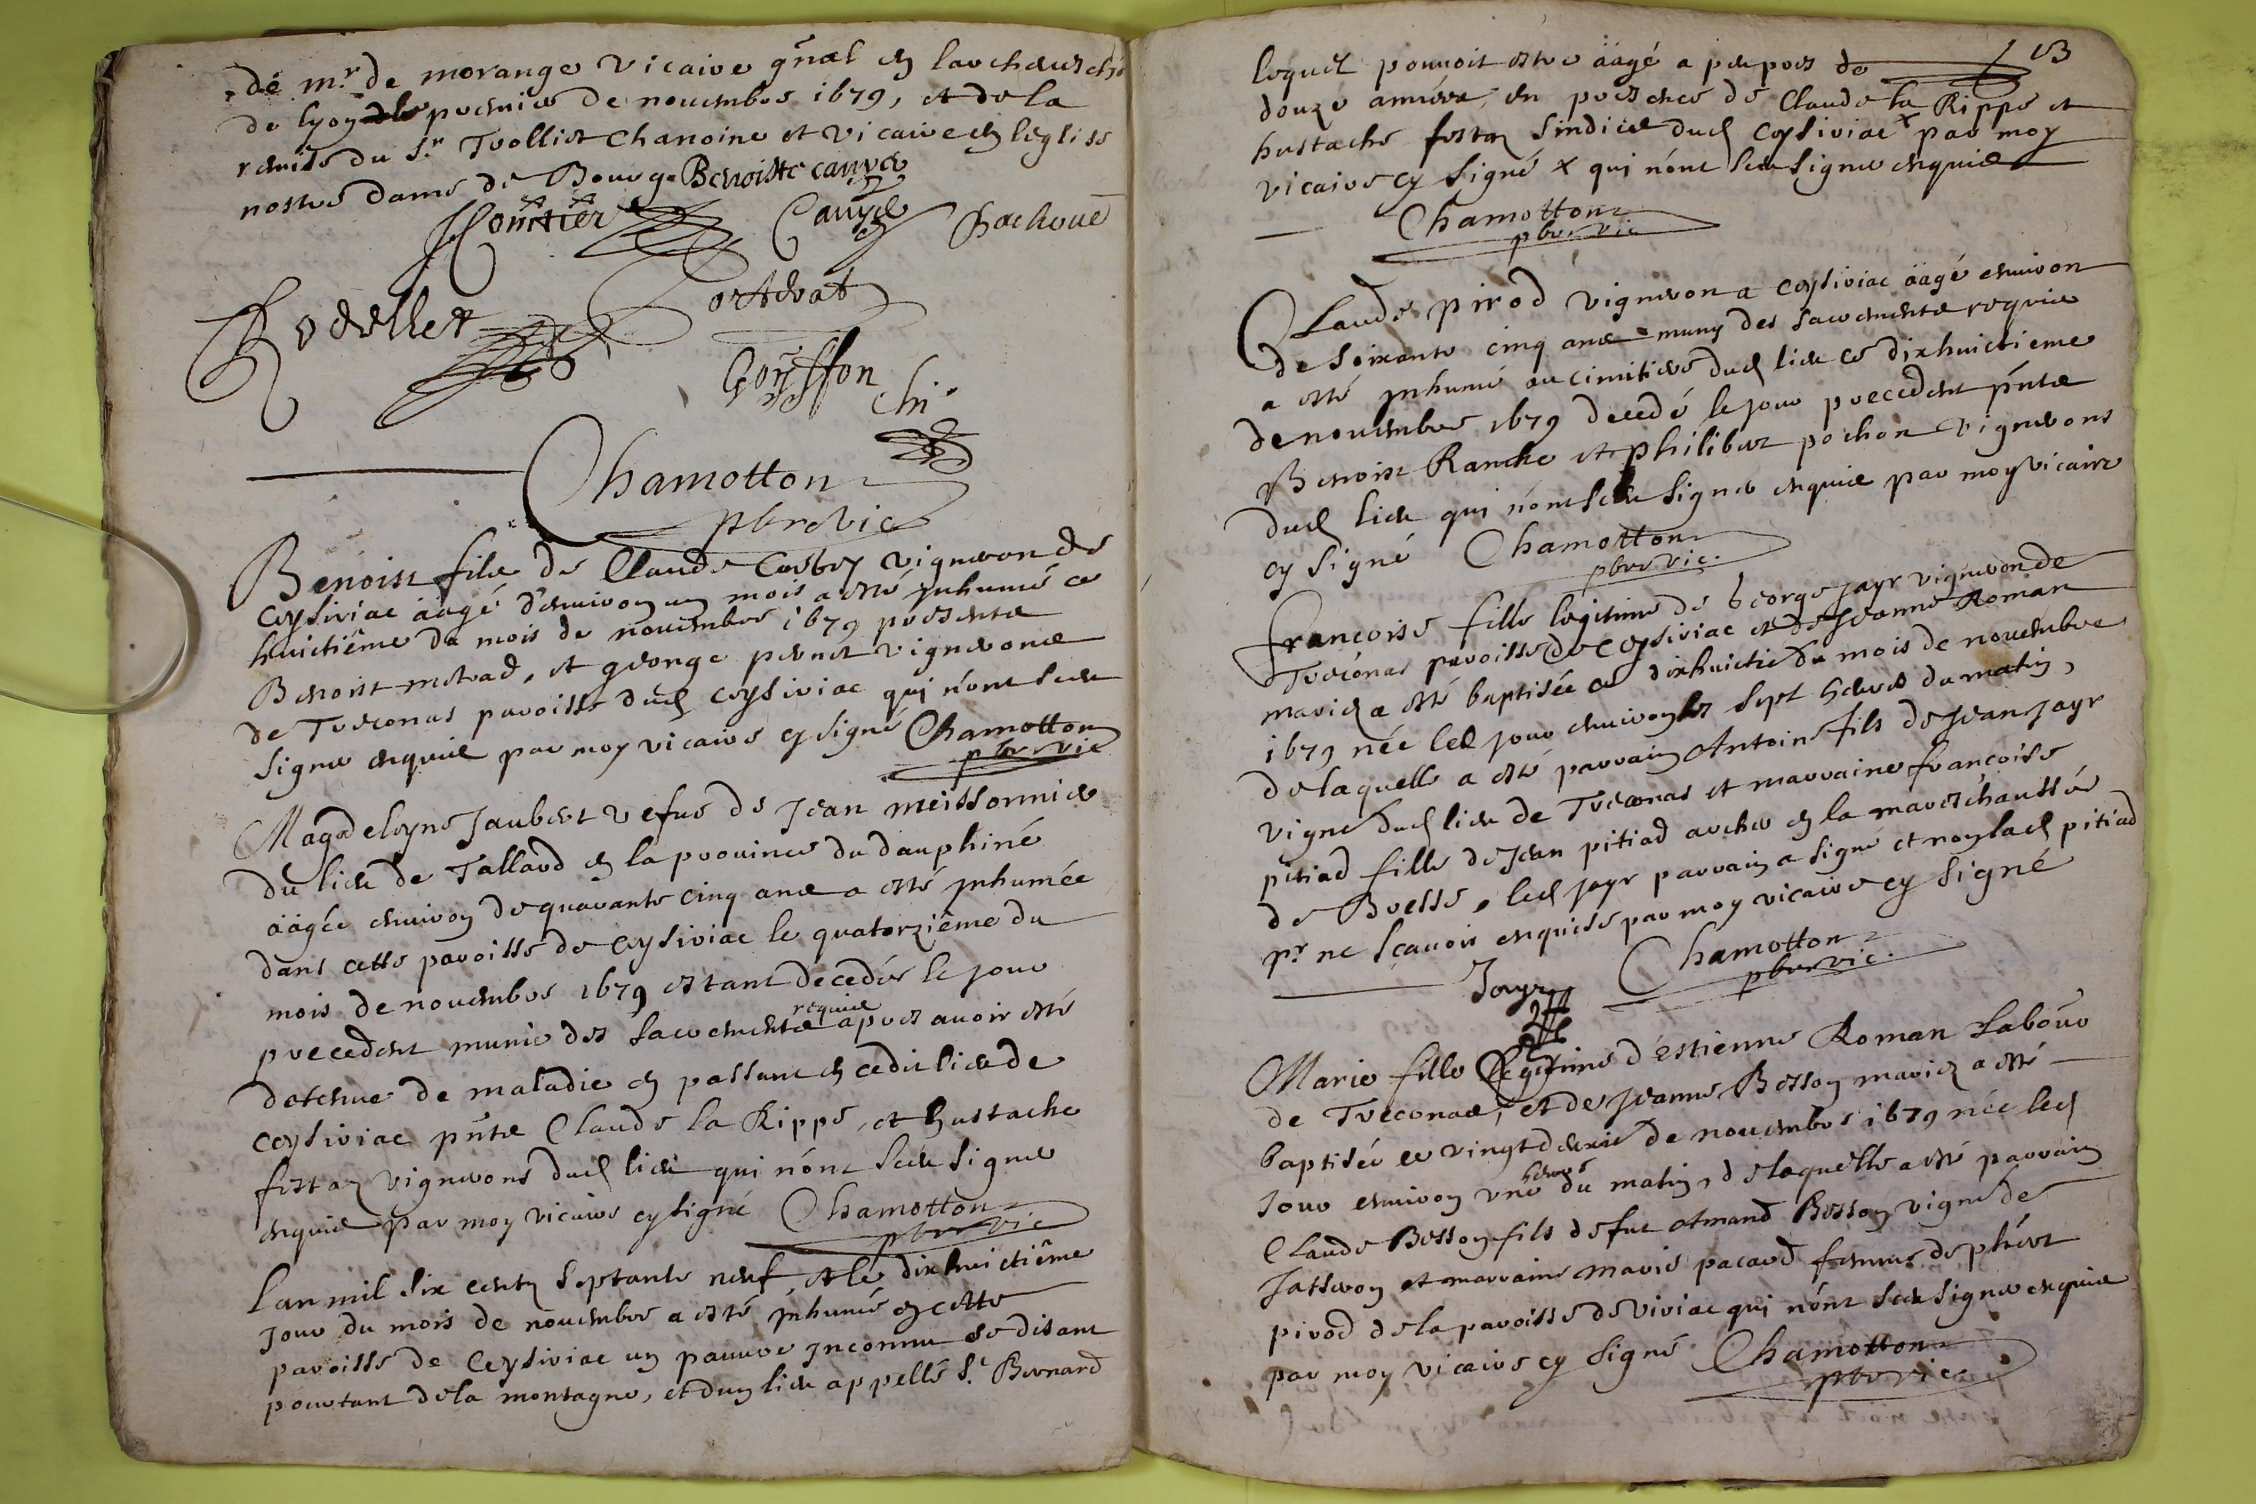 de mr de morange vicaire gñal en larchevesché
de lyon du premier de novembre 1679, et de la
remise du Sr Trolliet chanoine et vicaire en leglise
nostre dame de Bourg. Benoiste carrye
Contier Carrye
Rodellet
Goyffon
Chamotton
pbre vic
Benoist fils de Claude vigneron de
Ceysiriac aagé d'environ un mois a esté inhumé ce
huictiême du mois de novembre 1679 presents
Benoist metrad, et george pernet vignerons
de Treconas paroisse dud Ceysiriac qui n'ont sceu
signer enquis par moy vicaire cy signé Chamotton
pbre vic
Magdeleyne Jaubert vefve de Jean meissonnier
du lieu de Tallard en la province du dauphiné
aagée environ de quarante cinq ans a esté inhumée
dans cette paroisse de Ceysiriac le quatorziême du
mois de novembre 1679 estant decedée le jour
precedent munie des sacrements requis apres avoir esté
detenue de maladie en passant en cedit lieu de
Ceysiriac pñts Claude la Rippe, et hustache
festaz vignerons dud lieu qui n'ont sceu signer
enquis par moy vicaire cy signé Chamotton
pbre vic
Lan mil six cents septante neuf et le dixhuictiême
jour du mois de novembre a esté inhumé en cette
paroisse de Ceysiriac un pauvre inconnu se disant
pourtant de la montagne, et d'un lieu appellé St Bernard
13
lequel pouvoit estre äagé a peu pres de
douze années, en presence de Claude la Rippe et
hustache festaz sindics dud Ceysiriac x par moy
vicaire cy signé x qui n'ont sceu signer enquis
Chamotton
pbre vic
Claude pirod vigneron a Ceysiriac äagé environ
de soixante cinq ans muny des sacrements requis
a esté inhumé au cimitiere dud lieu ce dixhuictieme
de novembre 1679 decedé le jour precedent pñts
Benoist Ranche et philibert pochon vignerons
dud lieu qui n'ont sceu signer enquis par moy vicaire
cy signé Chamotton
pbre vic.
francoise fille legitime de George jayr vigneron de
Treconas paroisse de Ceysiriac et de Jeanne Roman
mariez a esté baptisée ce dixhuictie du mois de novembre
1679 née led jour environ les sept heures du matin,
de laquelle a esté parrain Antoine fils de Jean jayr
vigner dud lieu de Treconas et marraine francoise
pitiad fille de Jean pitiad archer en la mareschaussée
de Bresse, led jayr parrain a signé et non lad pitiad
pr ne sçavoir enquise par moy vicaire cy signé
Jayr Chamotton
pbre vic.
Marie fille legitime d'estienne Roman labour
de Treconas, et de Jeanne Besson mariez a esté
baptisée ce vingt deuxie de novembre 1679 née led
jour environ une heure du matin, de laquelle a esté parrain
Claude Besson fils de fut Amand Besson vigner de
Jasseron et marraine marie pacard femme de phbert
pirod de la paroisse de Viriac qui n'ont sceu signer enquis
par moy vicaire cy signé Chamotton
pbre vic